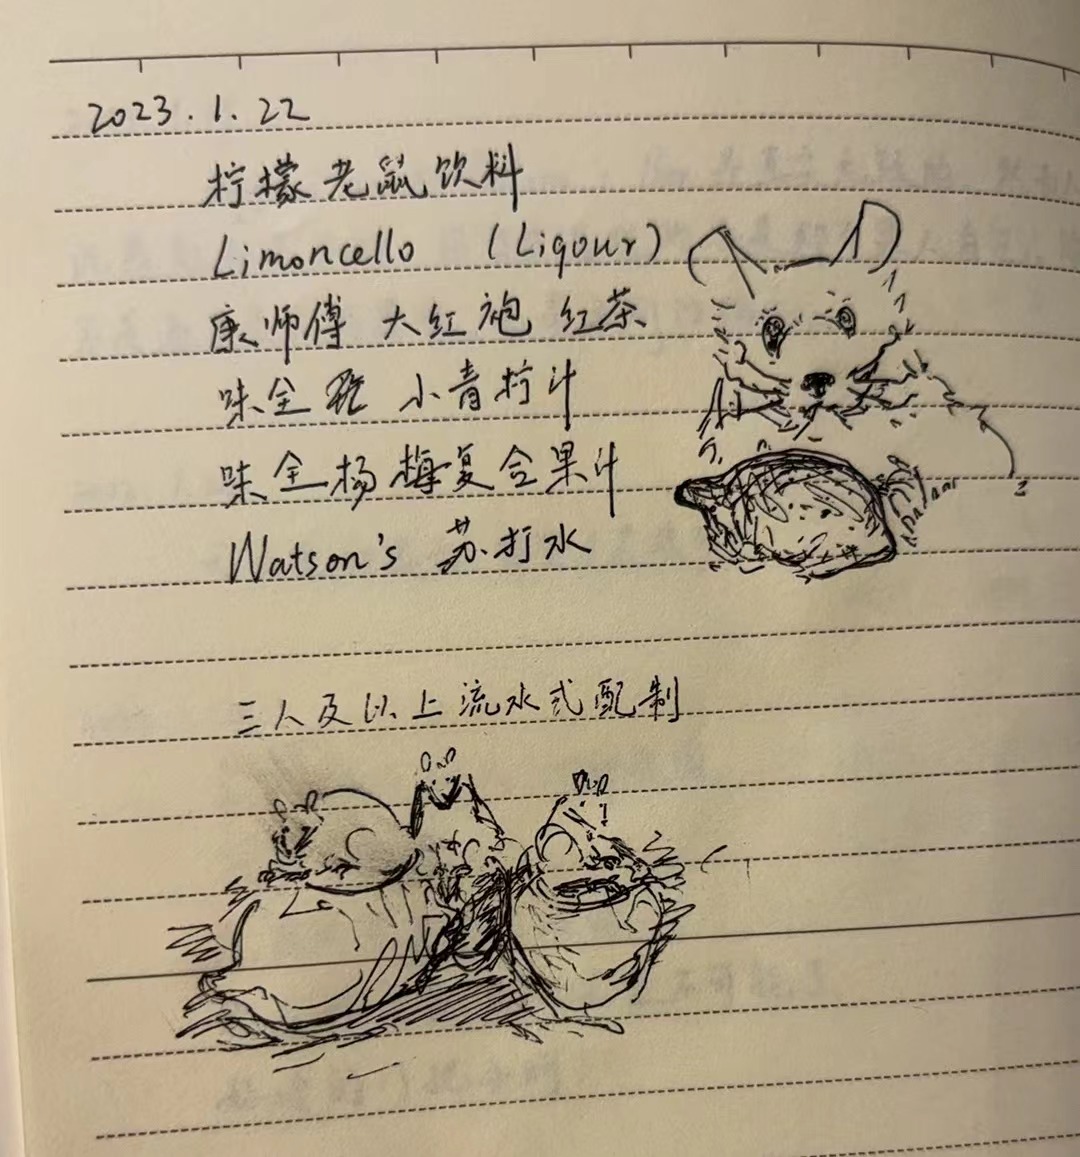 2023.1.22
柠檬老鼠饮料
Limoncello (Liqour)
康师傅 大红袍 红茶
味全 小青柠汁
味全杨梅复合果汁
Watson's 苏打水
三人及以上流水式配制